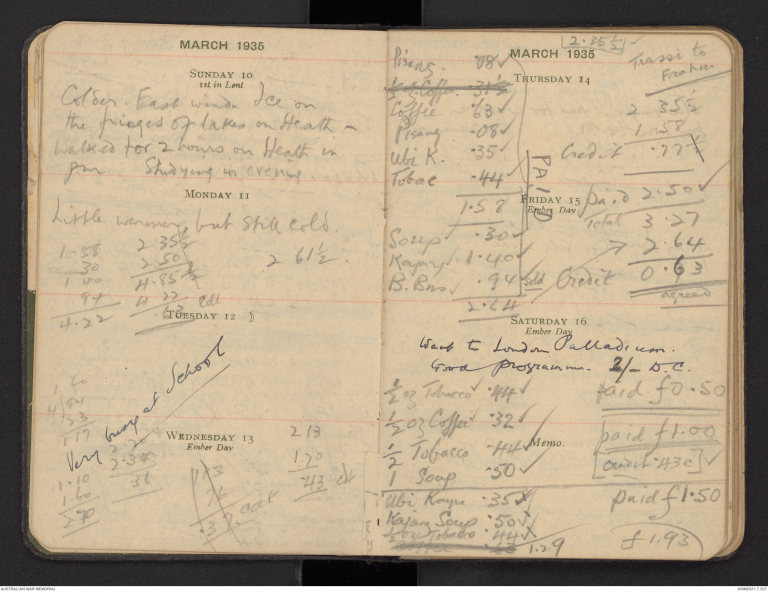 MARCH 1935
SUNDAY 10
1st in Lent
Colder. East wind Ice on
the fringes of lakes on Heath –
Walked for 2 hours on Heath in
pm Studying in evening
MONDAY 11
Little warmer, but still cold.
1.58
30
1.40
94
4.22
2.35½
2.50
4.85½
4.22
63 Cdt
2 61½
TUESDAY 12
Very busy at School
WEDNESDAY 13
Ember Day
2 13
1.70
.43 cdt
113
76
.37
1.10
1.60
2.70
2.35½
MARCH 1935
Pisang. .08
½ oz Coffee. .31½
Coffee .63
Pisang .08
Ubi K. .35
Tobac .44
1.58
PAID
THURSDAY 14
Trassi to
2 35½
1.58
Credit .77
FRIDAY 15
Ember Day
paid 2.50
Total 3.27
2.64
Credit 0.63
agreed
Soup .30
Kajang 1.40
B. Bns .94
Sold
2.64
SATURDAY 16
Ember Day
Went to London Palladium.
Good programme. 2/- D.C.
½ oz Tobacco .44
paid £0.50
½ oz Coffee .32
paid £1.00
½ Tobacco .44
Memo.
credit .43c
1 Soup .50
Ubi Kayu .35
paid £1.50
Kajang Soup .50
½ oz Tobacco .44
1.29
£1.93
AUSTRALIAN WAR MEMORIAL